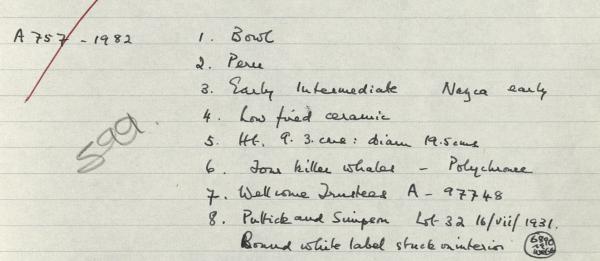 A 757 - 1982
1. Bowl
2. Peru
3. Early Intermediate Nazca early
4. Low fired ceramic
5. Ht. 9.3cms: diam 19.5cms
6. Four killer whales - Polychrome
7. Wellcome Trustees A - 97748
8. Puttick and Simpson Lot 32 16/vii/1931.
Round white label stuck on interior
599.